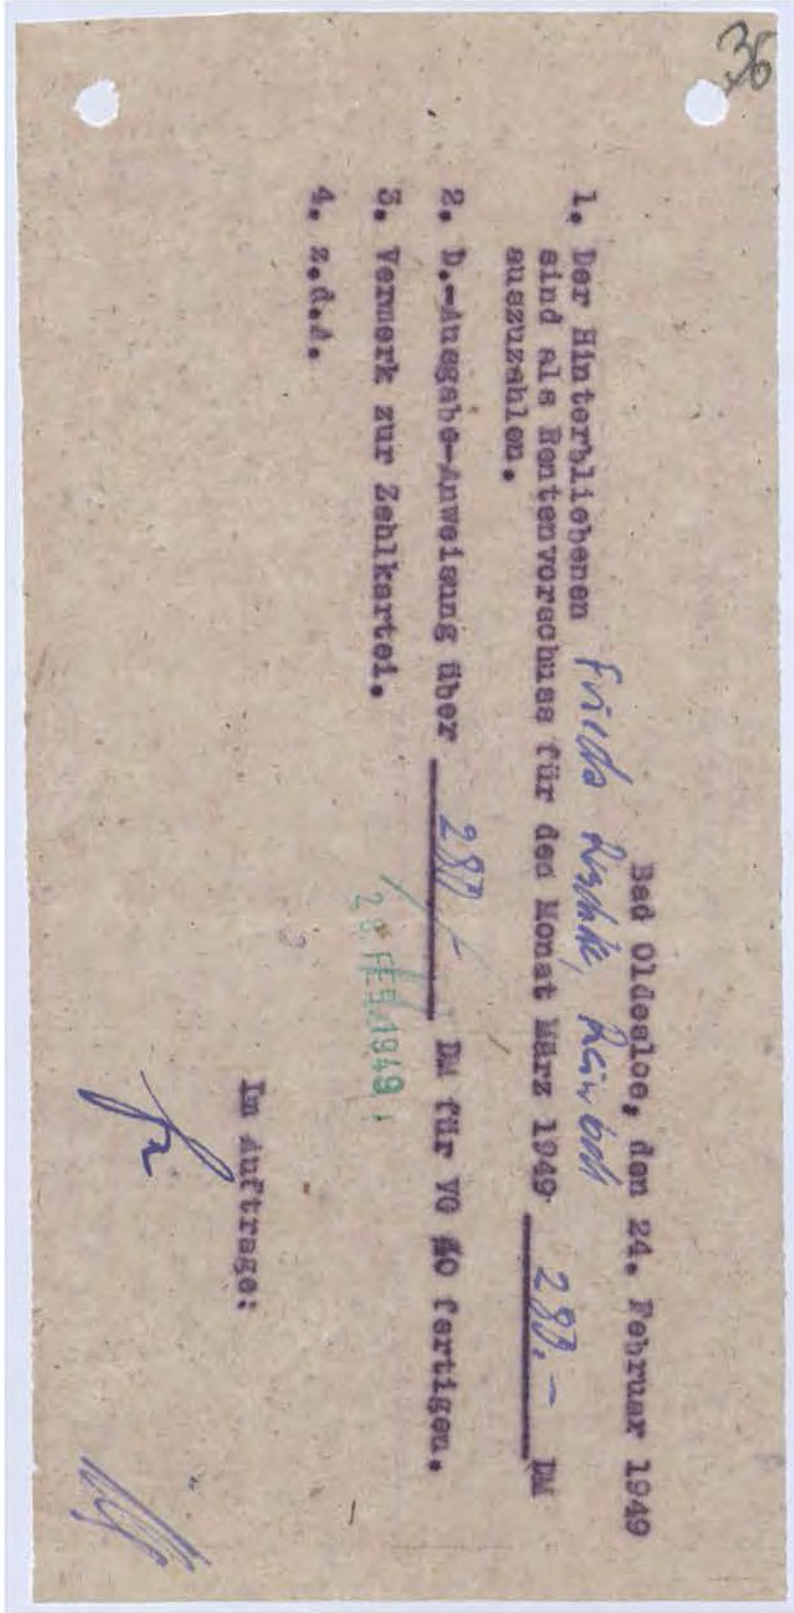 36
Bad Oldesloe, den 24. Februar 1949
1. Der Hinterbliebenen Frieda Reinbek
sind als Rentenvorschuss für den Monat März 1949 280.- DM
auszuzahlen.
2. D.-Ausgabe-Anweisung über 280.- DM für VO 40 fertigen.
3. Vermerk zur Zahlkartei.
28 FEB. 1949
4. z.d.A.
In Auftrage: